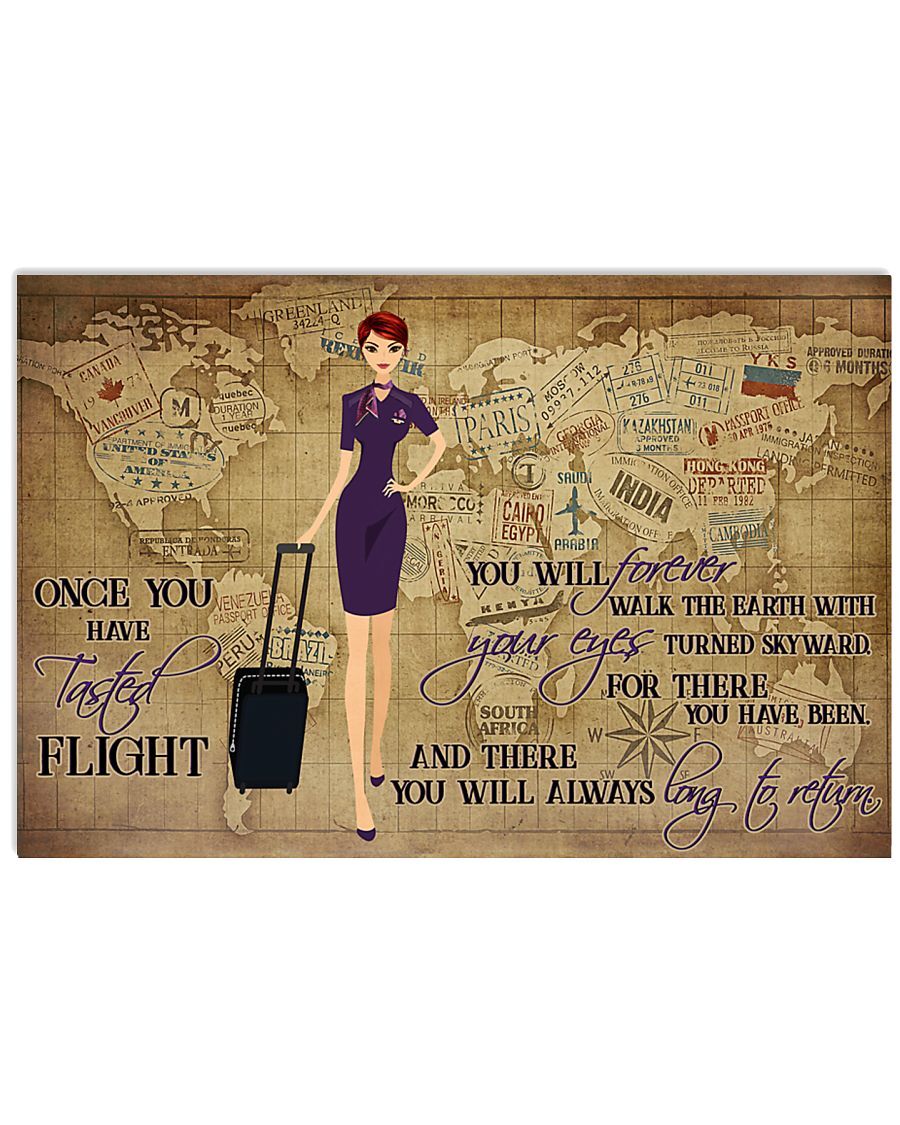 GREENLAND
34224-Q
CANADA
1977
VANCOUVER
M
quebec
DURATION
1 YEAR
quebec
UNITED STATES
OF
AMERICA
REPUBLICA DE HONDURAS
ENTRADA
VENEZUELA
PASSPORT OFFICE
PERU
BRAZIL
IMMIGRATION PORT
PARIS
MOSCOW
09937-112
276
276
011
23 018
011
YKS
APPROVED
6 MONTHS
GEORGIA
INTERNATIONAL
KAZAKHSTAN
APPROVED
3 MONTHS
M PASSPORT OFFICE
30 APR 1975
JAPAN
IMMIGRATION INSPECTION
LANDING PERMITTED
MOROCCO
ARRIVAL
CAIRO
EGYPT
SAUDI
ARABIA
IMMIGRATION OFFICE
INDIA
HONG KONG
DEPARTED
11 FEB 1982
CAMBODIA
NIGERIA
KENYA
SOUTH
AFRICA
AUSTRALIA
W
SW
SE
ONCE YOU
HAVE
Tasted
FLIGHT
YOU WILL forever
WALK THE EARTH WITH
your eyes TURNED SKYWARD.
FOR THERE
YOU HAVE BEEN.
AND THERE
YOU WILL ALWAYS long to return.